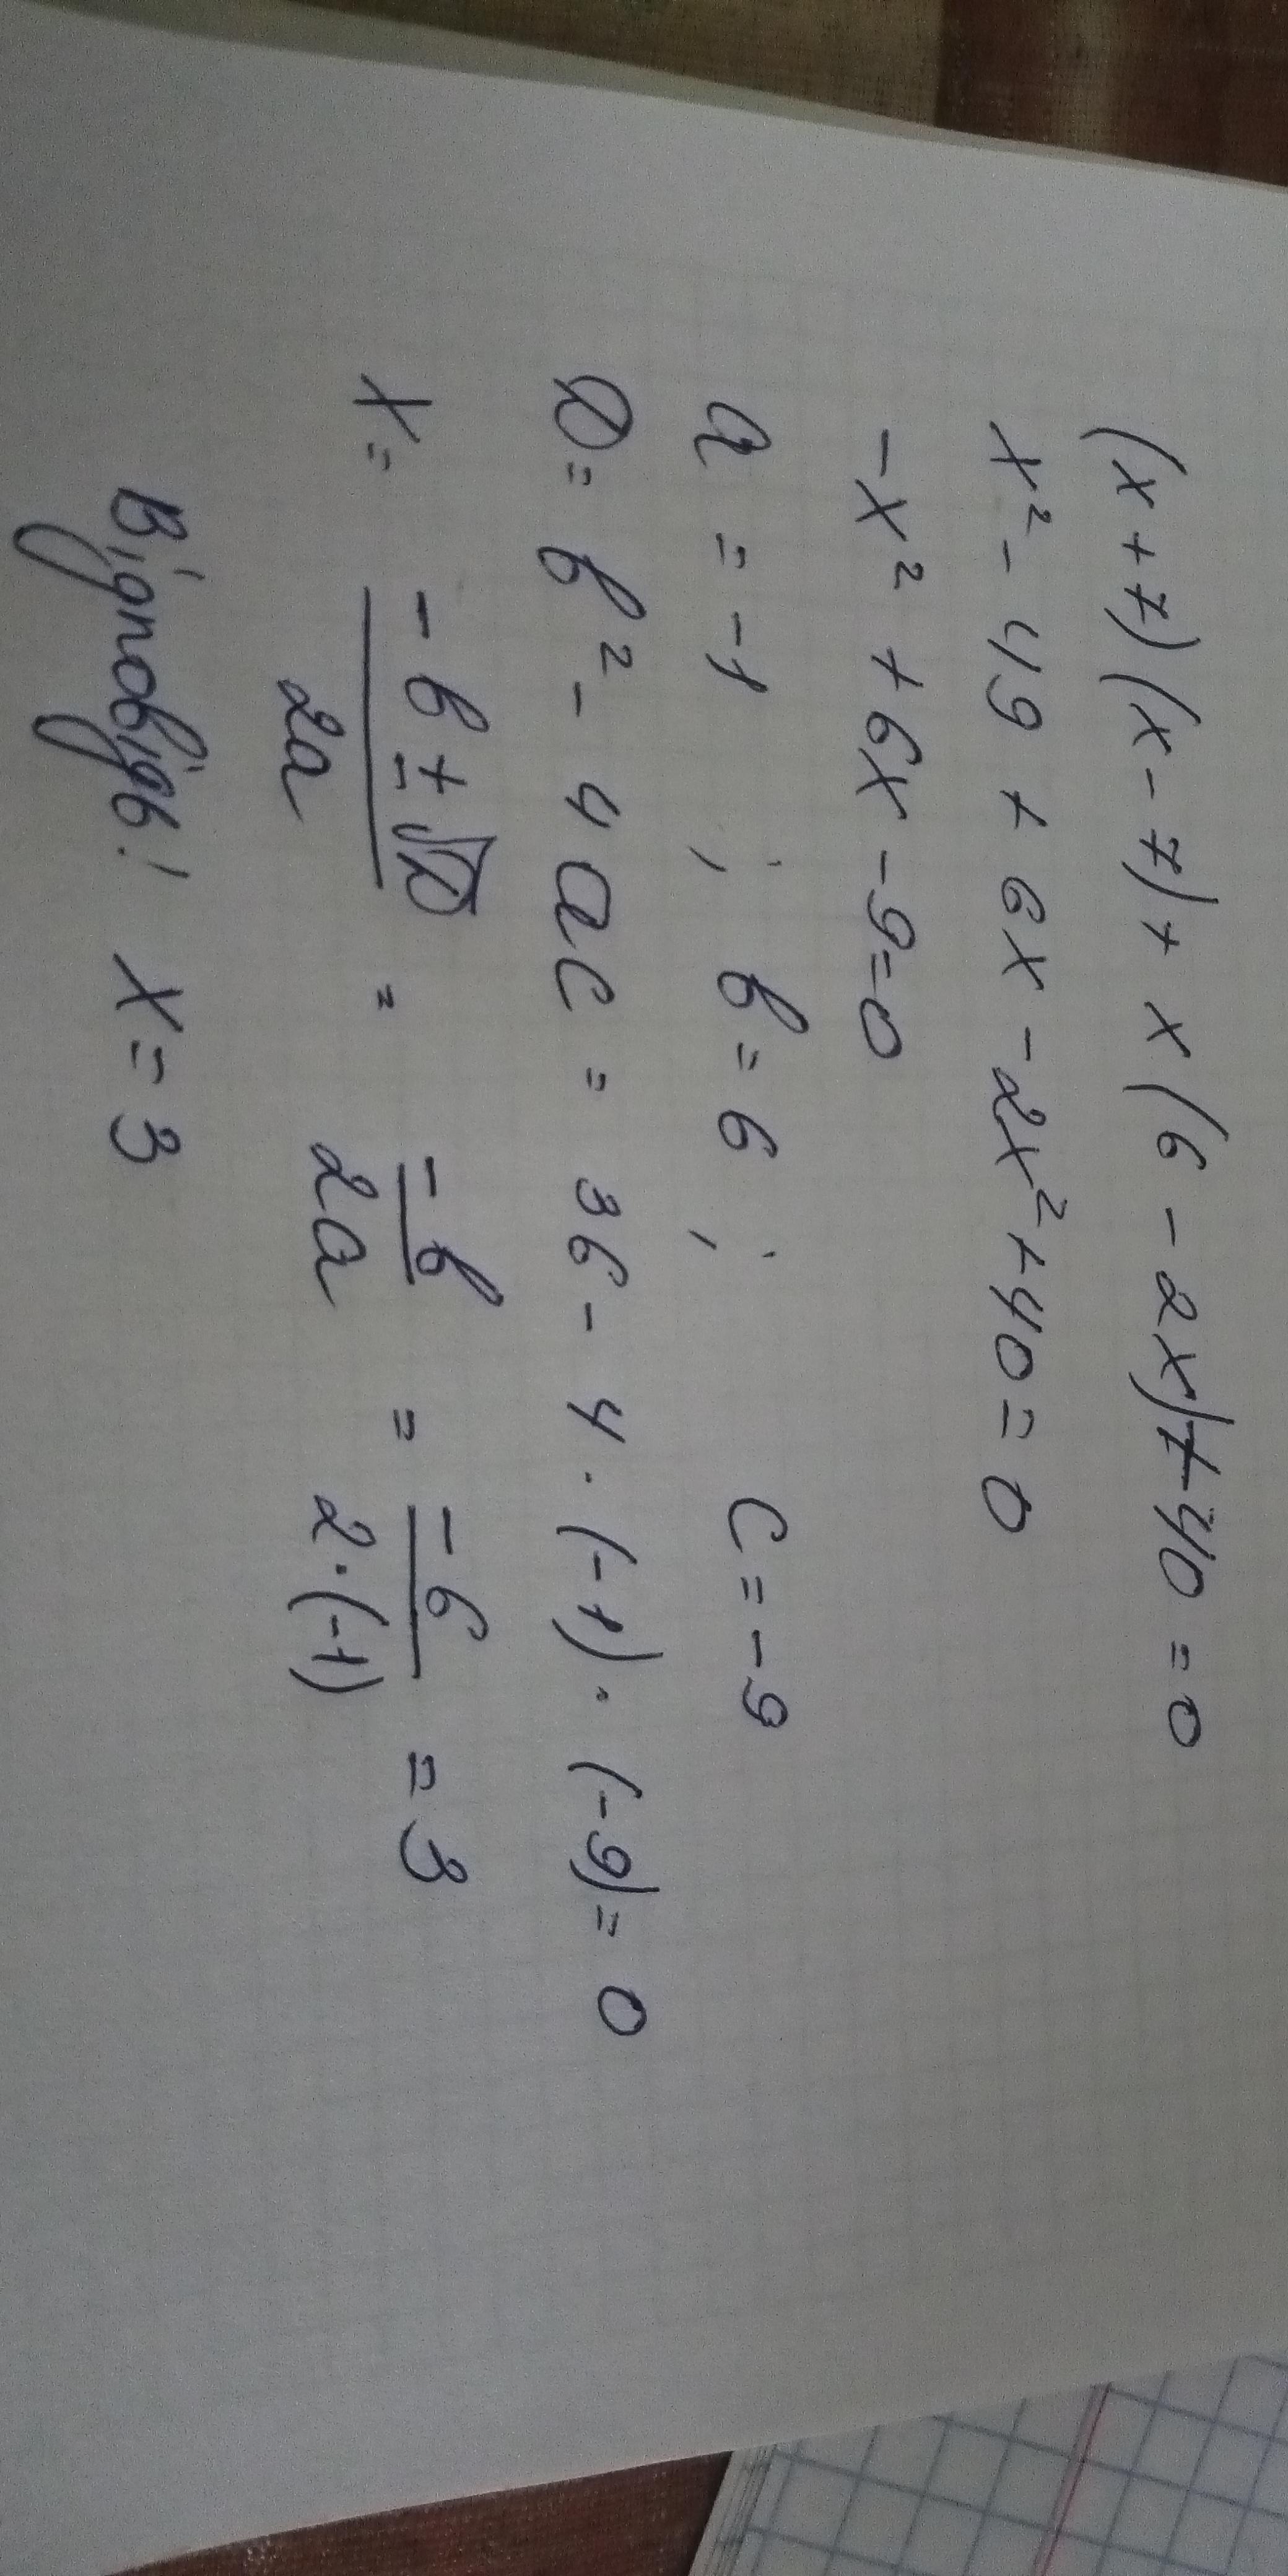 (x+7)(x-7)+x(6-2x)+40=0
x²-49+6x-2x²+40=0
-x²+6x-9=0
a=-1; b=6; c=-9
D=b²-4ac=36-4·(-1)·(-9)=0
x=(-b±√D)/2a=-b/2a=-6/2·(-1)=3
Відповідь: x=3